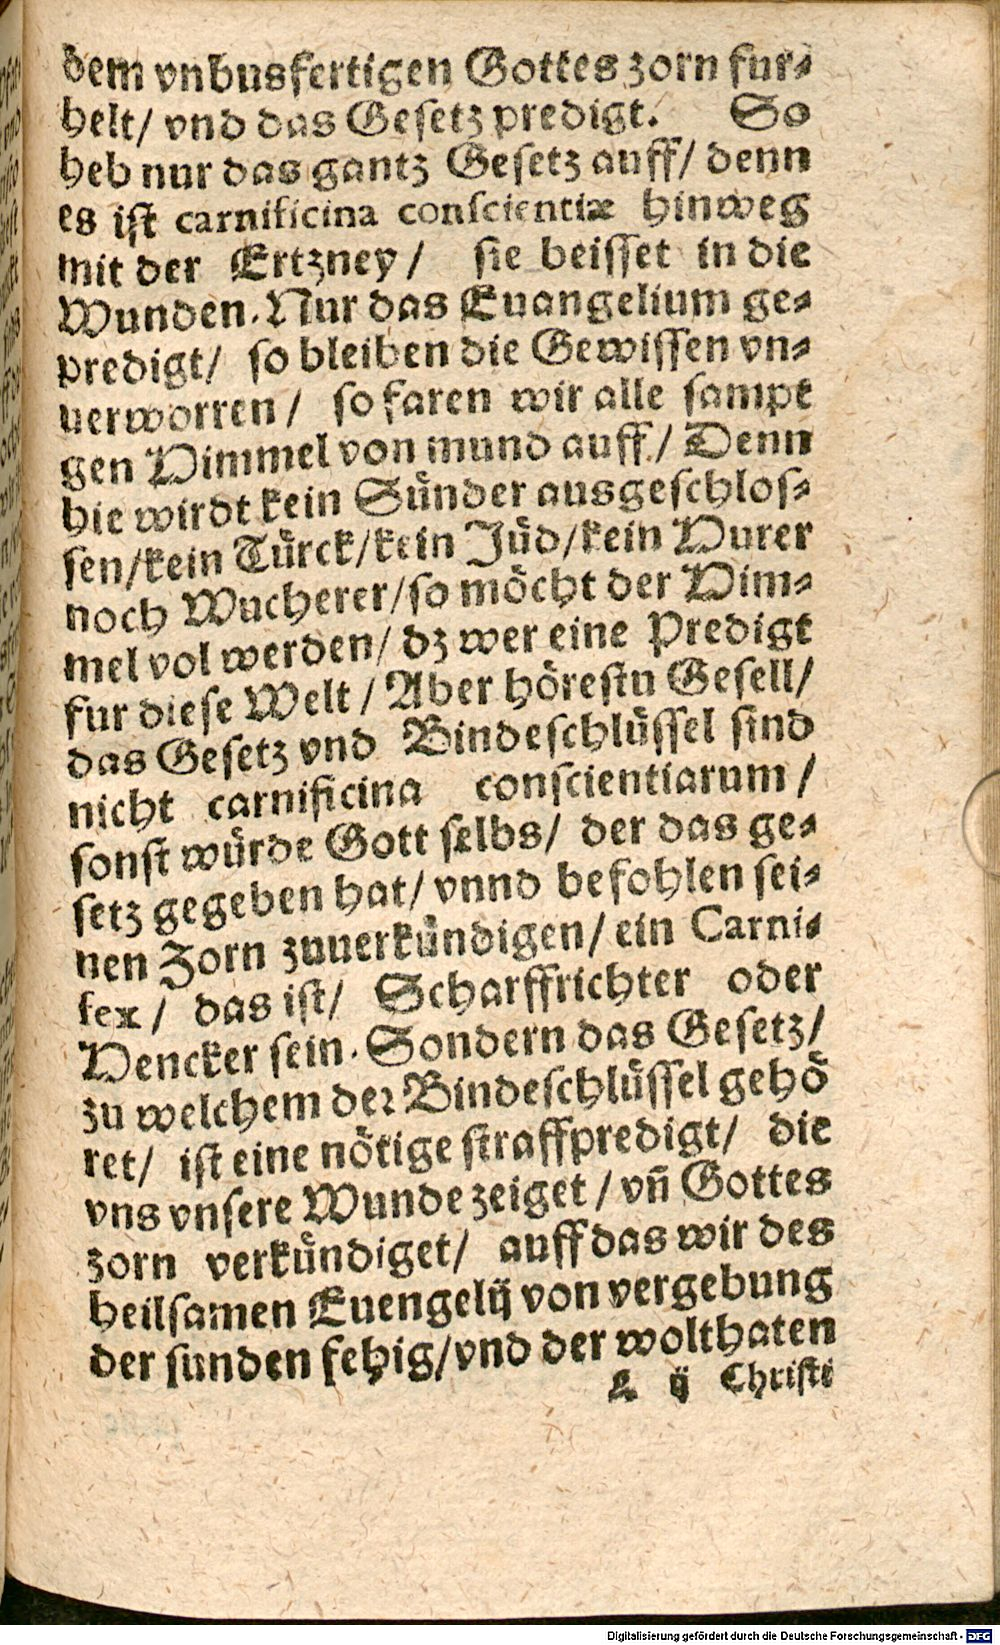 dem vnbusfertigen Gottes zorn fur-
helt/ vnd das Gesetz predigt. So
heb nur das gantz Gesetz auff/ denn
es ist carnificina conscientiæ hinweg
mit der Ertzney/ sie beisset in die
Wunden. Nur das Euangelium ge-
predigt/ so bleiben die Gewissen vn-
uerworren/ so faren wir alle sampt
gen Himmel von mund auff/ Denn
hie wirdt kein Sünder ausgeschlos-
sen/kein Türck/kein Jüd/kein Hurer
noch Wucherer/so möcht der Him-
mel vol werden/ dz wer eine Predigt
fur diese Welt/ Aber hörestu Gesell/
das Gesetz vnd Bindeschlüssel sind
nicht carnificina conscientiarum/
sonst würde Gott selbs/ der das ge-
setz gegeben hat/ vnnd befohlen sei-
nen Zorn zuuerkündigen/ ein Carni-
fex/ das ist/ Scharffrichter oder
Hencker sein. Sondern das Gesetz/
zu welchem der Bindeschlüssel gehö
ret/ ist eine nötige straffpredigt/ die
vns vnsere Wunde zeiget/vñ Gottes
zorn verkündiget/ auff das wir des
heilsamen Euengelij von vergebung
der sunden fehig/vnd der wolthaten
L ij Christi
Digitalisierung gefördert durch die Deutsche Forschungsgemeinschaft - DFG